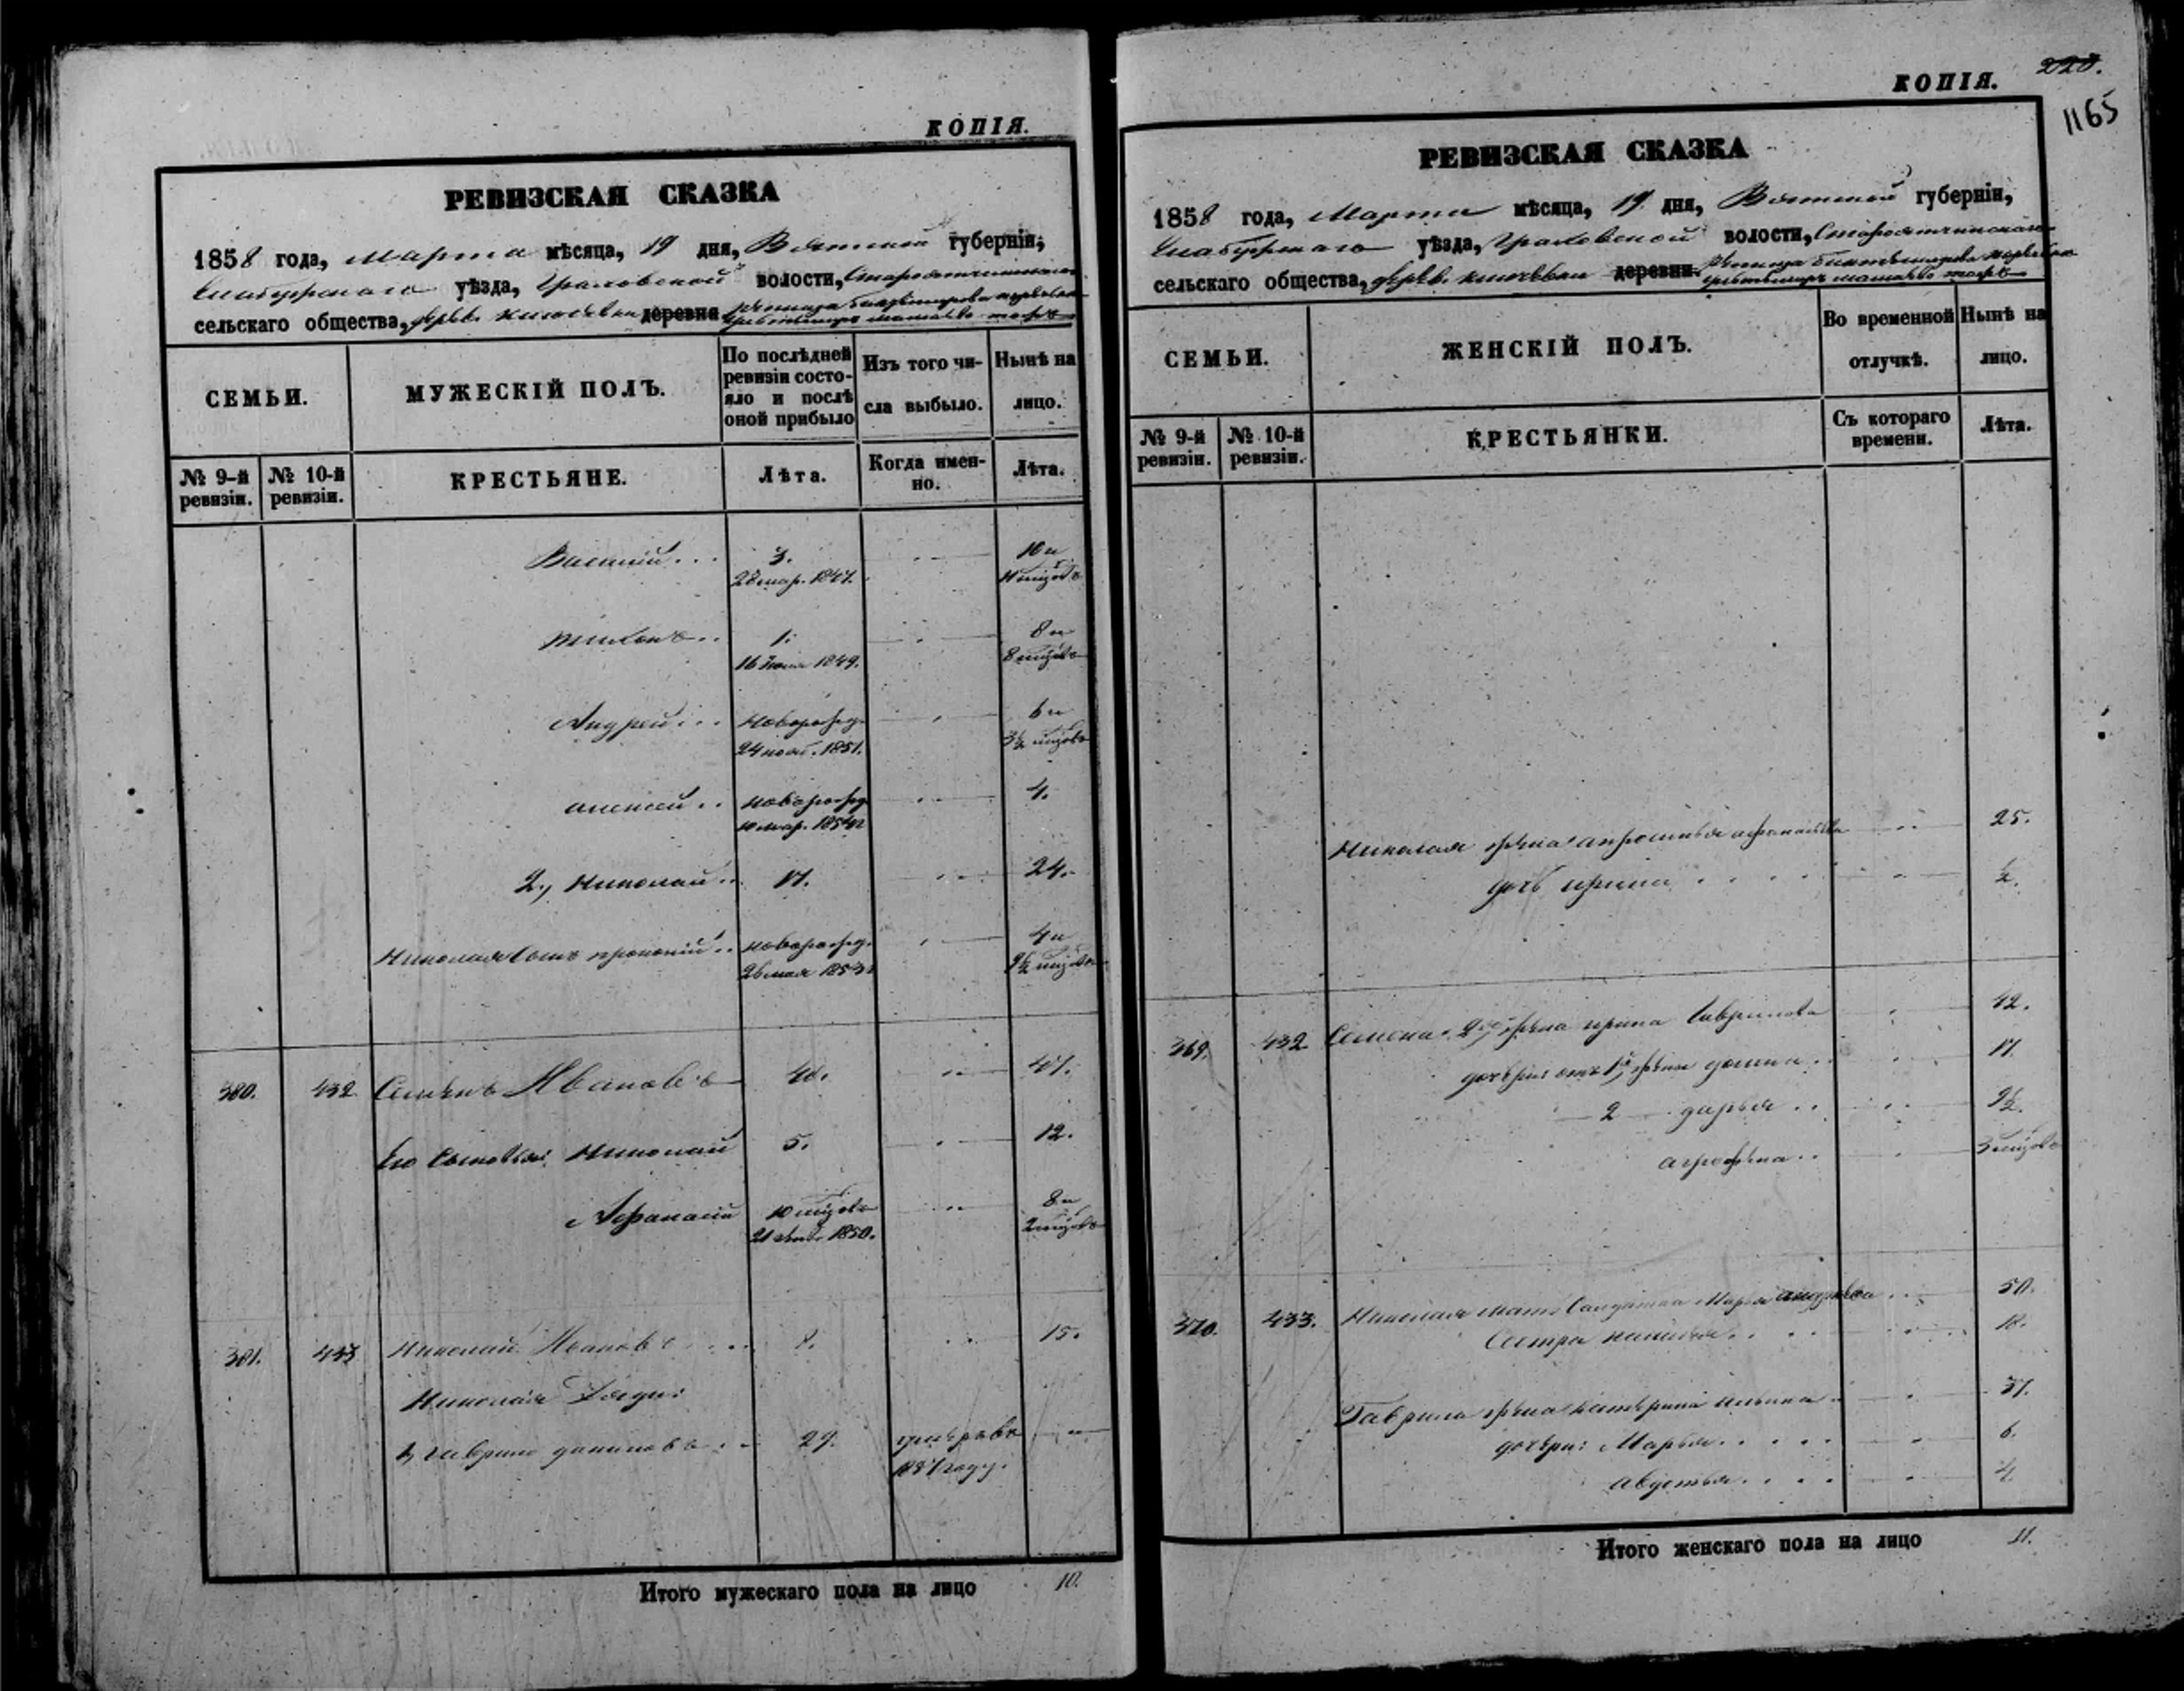 КОПІЯ.
РЕВИЗСКАЯ СКАЗКА
1858 года, Марта мѣсяца, 19 дня, Вятской губерніи,
Елабужскаго уѣзда, Граховской волости,
сельскаго общества, деревни
СЕМЬИ.
МУЖЕСКІЙ ПОЛЪ.
По послѣдней ревизіи состояло и послѣ оной прибыло
Изъ того числа выбыло.
Нынѣ на лицо.
№ 9-й ревизіи.
№ 10-й ревизіи.
КРЕСТЬЯНЕ.
Лѣта.
Когда именно.
Лѣта.
Василій .. 3. 10 и
28 мар. 1847. 11 мцовъ
Тихонъ .. 1. 8 и
16 Іюня 1849. 8 мцовъ
Андрей ... новорожд. 6 и
24 нояб. 1851. 3½ мцовъ
Алексей .. новорожд. 4.
10 мар. 1854
2, Николай .. 17. 24.
Николая сынъ прокопій .. новорожд. 4 и
26 мая 1853 9½ мцовъ
380. 432 Семенъ Ивановъ 40. 47.
Его сыновья: Николай 5. 12.
Афанасій 10 мцовъ 8 и
1850. 2 мцовъ
381. 433 Николай Ивановъ 8. 15.
Николая Дяди:
1, гаврило даниловъ .. 29. умеръ въ
1857 году.
Итого мужескаго пола на лицо 10.
КОПІЯ. 228.
1165
РЕВИЗСКАЯ СКАЗКА
1858 года, Марта мѣсяца, 19 дня, Вятской губерніи,
Елабужскаго уѣзда, Граховской волости,
сельскаго общества, деревни
СЕМЬИ.
ЖЕНСКІЙ ПОЛЪ.
Во временной отлучкѣ.
Нынѣ на лицо.
№ 9-й ревизіи.
№ 10-й ревизіи.
КРЕСТЬЯНКИ.
Съ котораго времени.
Лѣта.
Николая жена апросинья афанасьева 25.
дочь ирина ½.
369. 432 Семена 2я жена ирина гаврилова 42.
дочери: отъ 1й жены домна .. 17.
2 дарья .. 9½.
аграфена .. 3 мцовъ
370. 433. Николая мать Солдатка Марья андреева .. 50.
Сестра 18.
Гаврила жена катерина ильина 37.
дочери: Марья 6.
авдотья 4.
Итого женскаго пола на лицо 11.